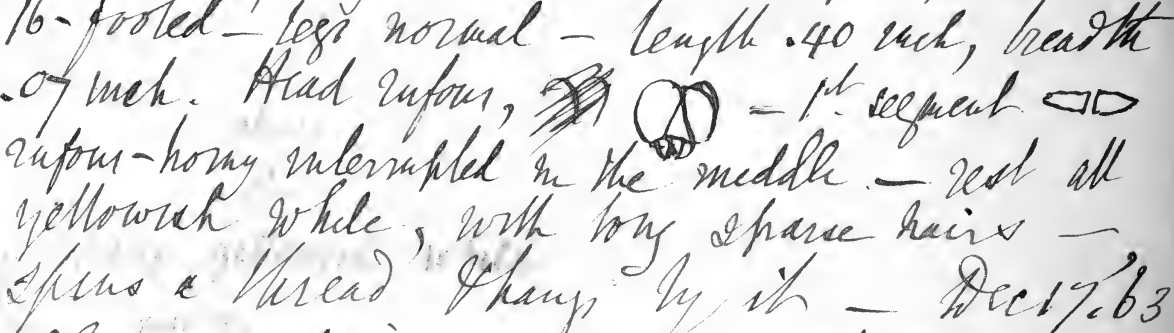 16-footed – legs normal – length .40 inch, breadth
.07 inch. Head rufous, – 1st segment
rufous-horny interrupted in the middle – rest all
yellowish white, with long sparse hairs –
spins a thread & hangs by it – Dec 17, 63